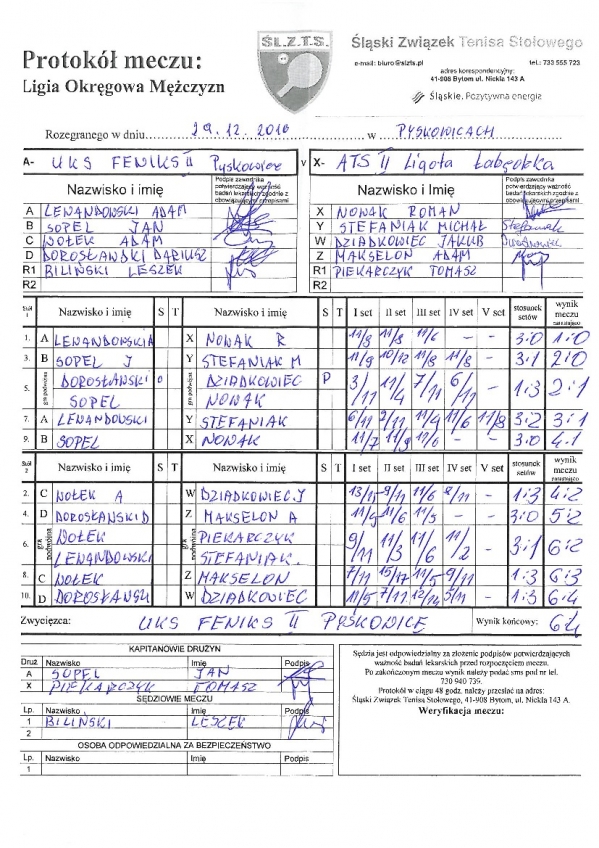 ŚL.Z.T.S.
Protokół meczu:
Ligia Okręgowa Mężczyzn
Śląski Związek Tenisa Stołowego
e-mail: biuro@slzts.pl tel.: 733 555 723
adres korespondencyjny:
41-908 Bytom ul. Nickla 143 A
Śląskie. Pozytywna energia
Rozegranego w dniu 29.12.2016 w PYSKOWICACH
A- UKS FENIKS II Pyskowice v X- ATS II Ligota Łabędzka
Nazwisko i imię Podpis zawodnika potwierdzający ważność badań lekarskich zgodnie z obowiązującymi przepisami Nazwisko i imię Podpis zawodnika potwierdzający ważność badań lekarskich zgodnie z obowiązującymi przepisami
A LEWANDOWSKI ADAM X NOWAK ROMAN
B SOPEL JAN Y STEFANIAK MICHAŁ Stefaniak
C WOŁEK ADAM W DZIADKOWIEC JAKUB Dziadkowiec
D DOROSŁAŃSKI DARIUSZ Z MAKSELON ADAM
R1 BILIŃSKI LESZEK R1 PIEKARCZYK TOMASZ
R2 R2
Stół 1 Nazwisko i imię S T Nazwisko i imię S T I set II set III set IV set V set stosunek setów wynik meczu narastająco
1. A LEWANDOWSKI A X NOWAK R 11/8 11/8 11/6 - - 3:0 1:0
3. B SOPEL J Y STEFANIAK M 11/9 10/12 11/8 11/8 - 3:1 2:0
5. gra podwójna DOROSŁAŃSKI o DZIADKOWIEC P 3/11 11/4 7/11 6/11 - 1:3 2:1
SOPEL NOWAK
7. A LEWANDOWSKI Y STEFANIAK 6/11 2/11 11/4 11/6 11/8 3:2 3:1
9. B SOPEL X NOWAK 11/7 11/9 11/6 - - 3:0 4:1
Stół 2 Nazwisko i imię S T Nazwisko i imię S T I set II set III set IV set V set stosunek setów wynik meczu narastająco
2. C WOŁEK A W DZIADKOWIEC J 13/15 9/11 11/6 8/11 - 1:3 4:2
4. D DOROSŁAŃSKI D Z MAKSELON A 11/9 11/6 11/5 - - 3:0 5:2
6. gra podwójna WOŁEK PIEKARCZYK 9/11 11/3 11/6 11/2 - 3:1 6:2
LEWANDOWSKI STEFANIAK
8. C WOŁEK Z MAKSELON 7/11 15/17 11/5 9/11 - 1:3 6:3
10. D DOROSŁAŃSKI W DZIADKOWIEC 11/5 7/11 12/14 5/11 - 1:3 6:4
Zwycięzca: UKS FENIKS II PYSKOWICE Wynik końcowy: 6:4
KAPITANOWIE DRUŻYN
Druż Nazwisko Imię Podpis
A SOPEL JAN
X PIEKARCZYK TOMASZ
SĘDZIOWIE MECZU
Lp. Nazwisko Imię Podpis
1 BILIŃSKI LESZEK
2
OSOBA ODPOWIEDZIALNA ZA BEZPIECZEŃSTWO
Lp. Nazwisko Imię Podpis
1
Sędzia jest odpowiedzialny za złożenie podpisów potwierdzających
ważność badań lekarskich przed rozpoczęciem meczu.
Po zakończonym meczu wynik należy podać sms pod nr tel.
730 940 739.
Protokół w ciągu 48 godz. należy przesłać na adres:
Śląski Związek Tenisa Stołowego, 41-908 Bytom, ul. Nickla 143 A.
Weryfikacja meczu: